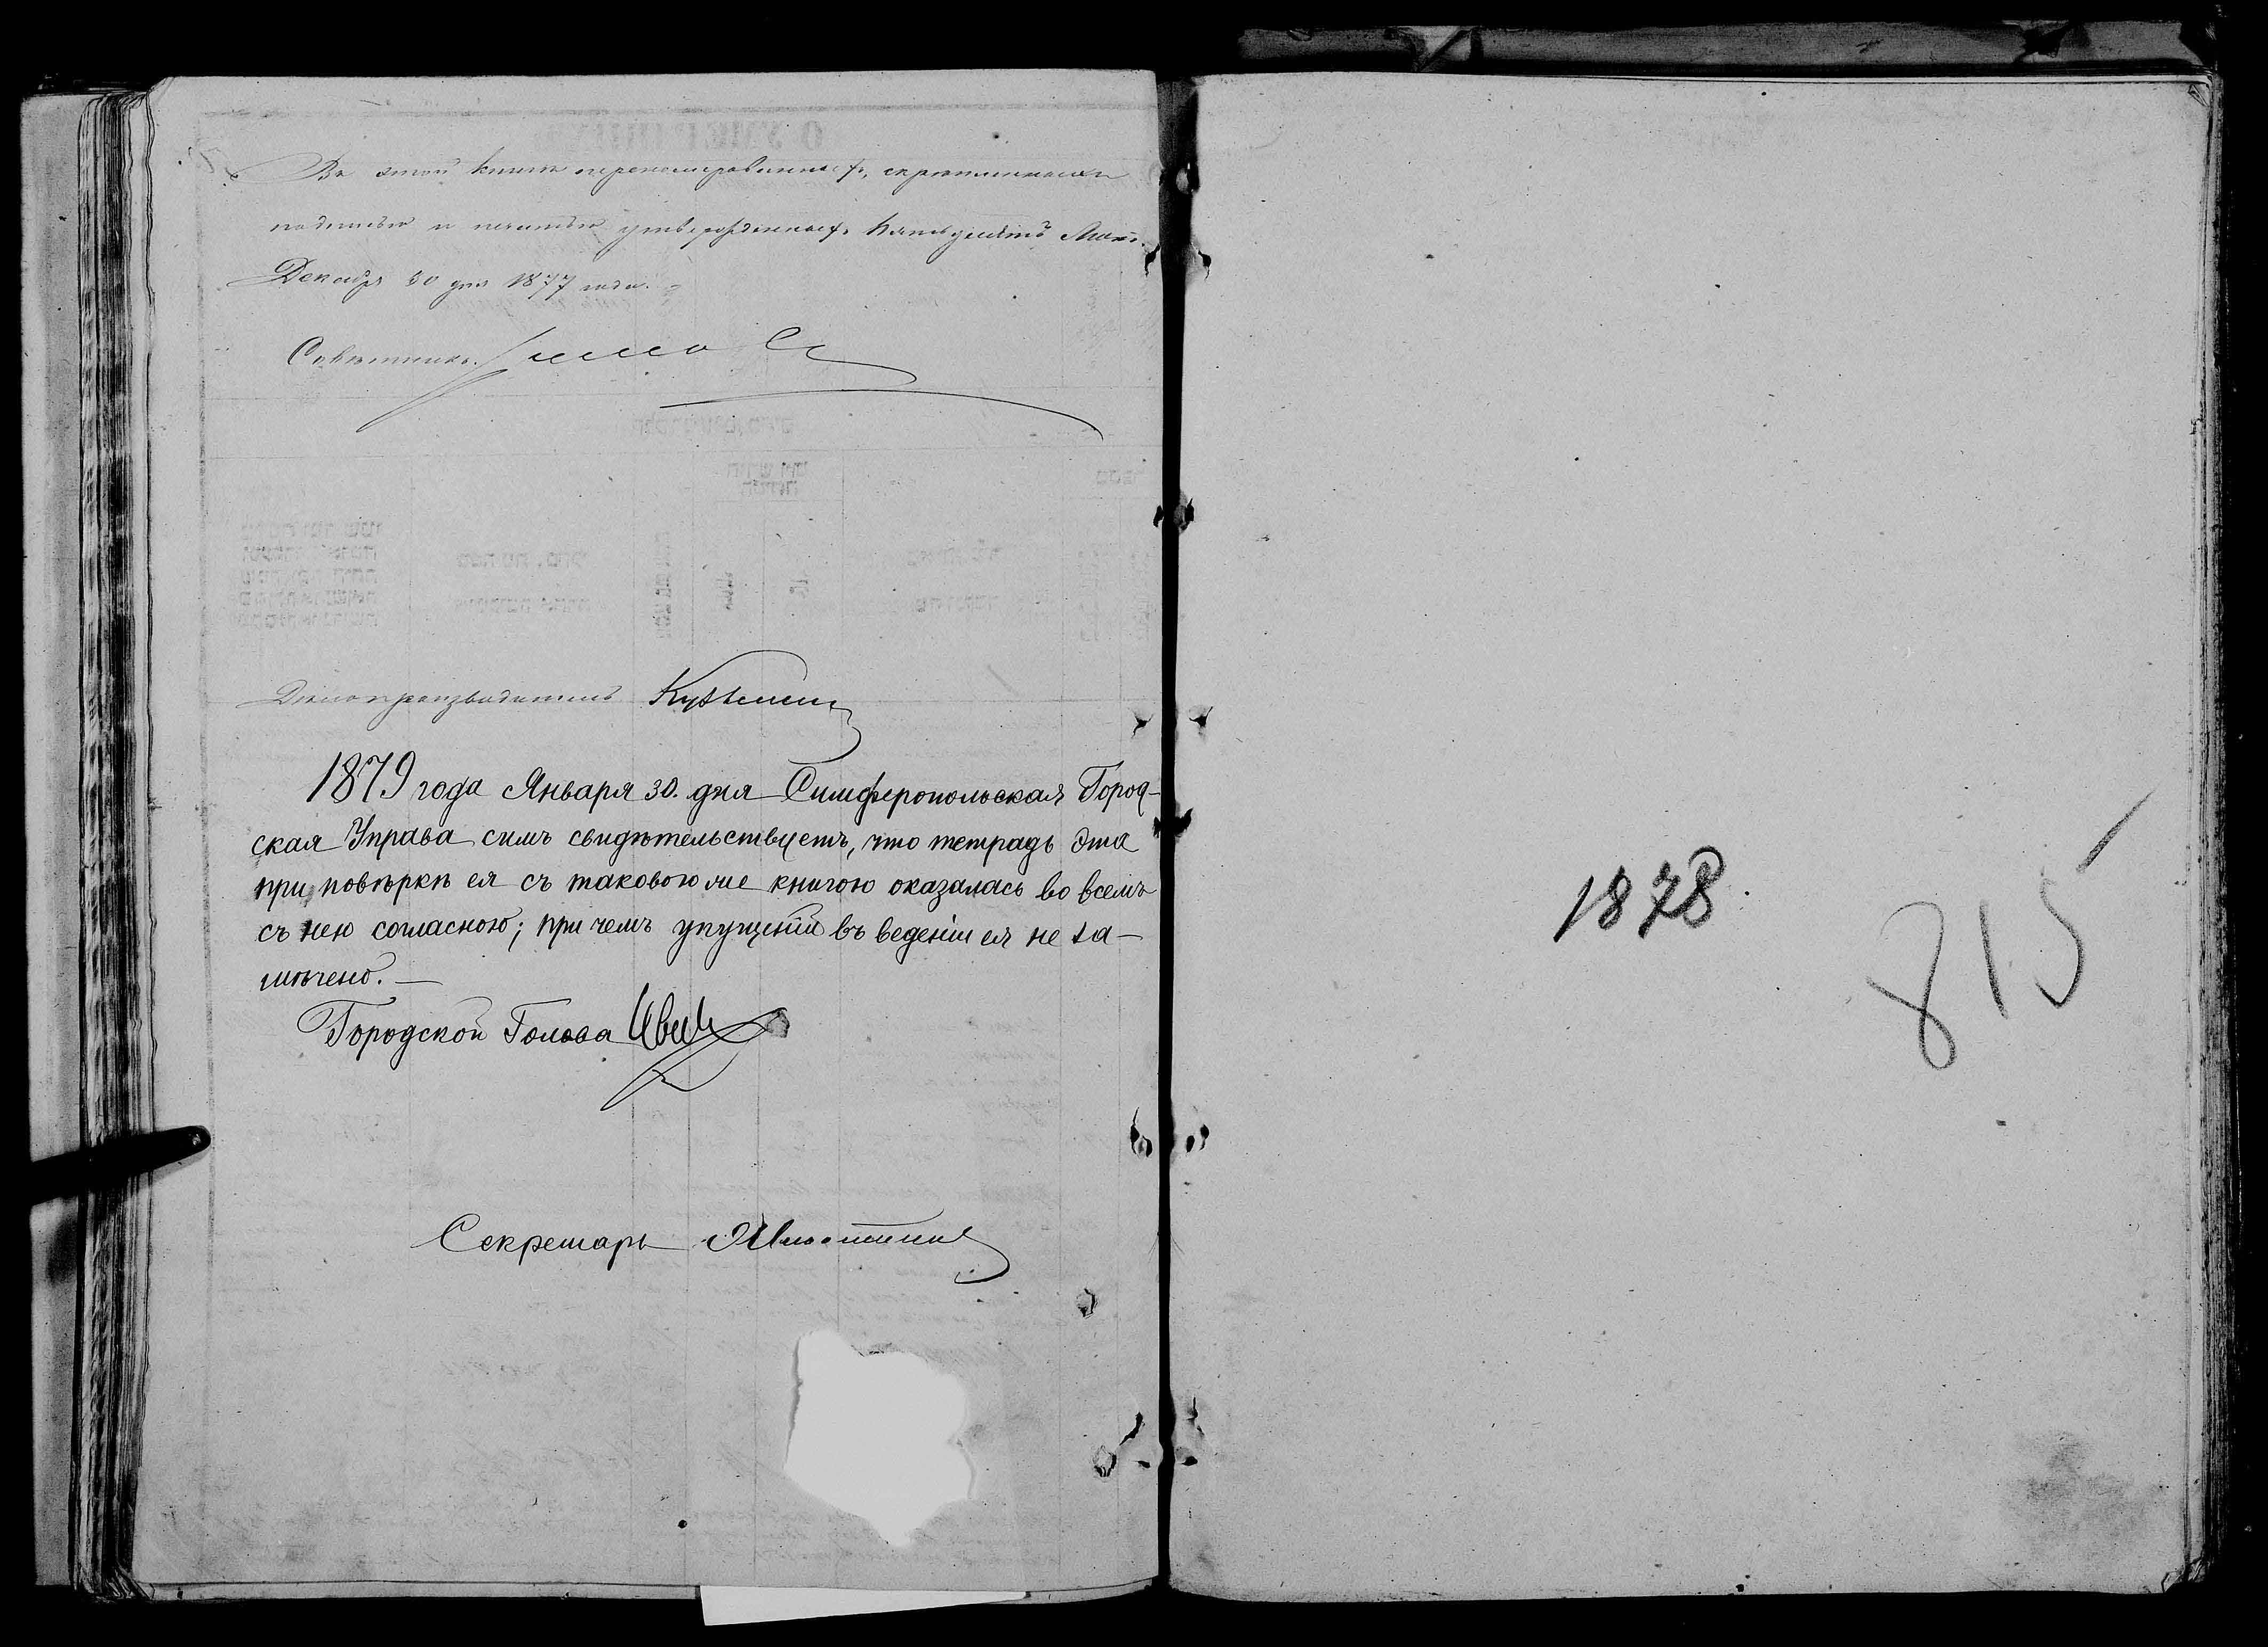 Въ этой книгѣ перенумерованныхъ, скрѣпленныхъ
подписью и печатью утвержденныхъ пятьдесятъ лист.
Декабря 30 дня 1877 года.
Совѣтникъ
Дѣлопроизводитель Кузьмин
1879 года Января 30. дня Симферопольская Город-
ская Управа симъ свидѣтельствуетъ, что тетрадь эта
при повѣркѣ ея съ таковою же книгою оказалась во всемъ
съ нею согласною; при чемъ упущеній въ веденіи ея не за-
мѣчено.—
Городской Голова
Секретарь
1878.
815